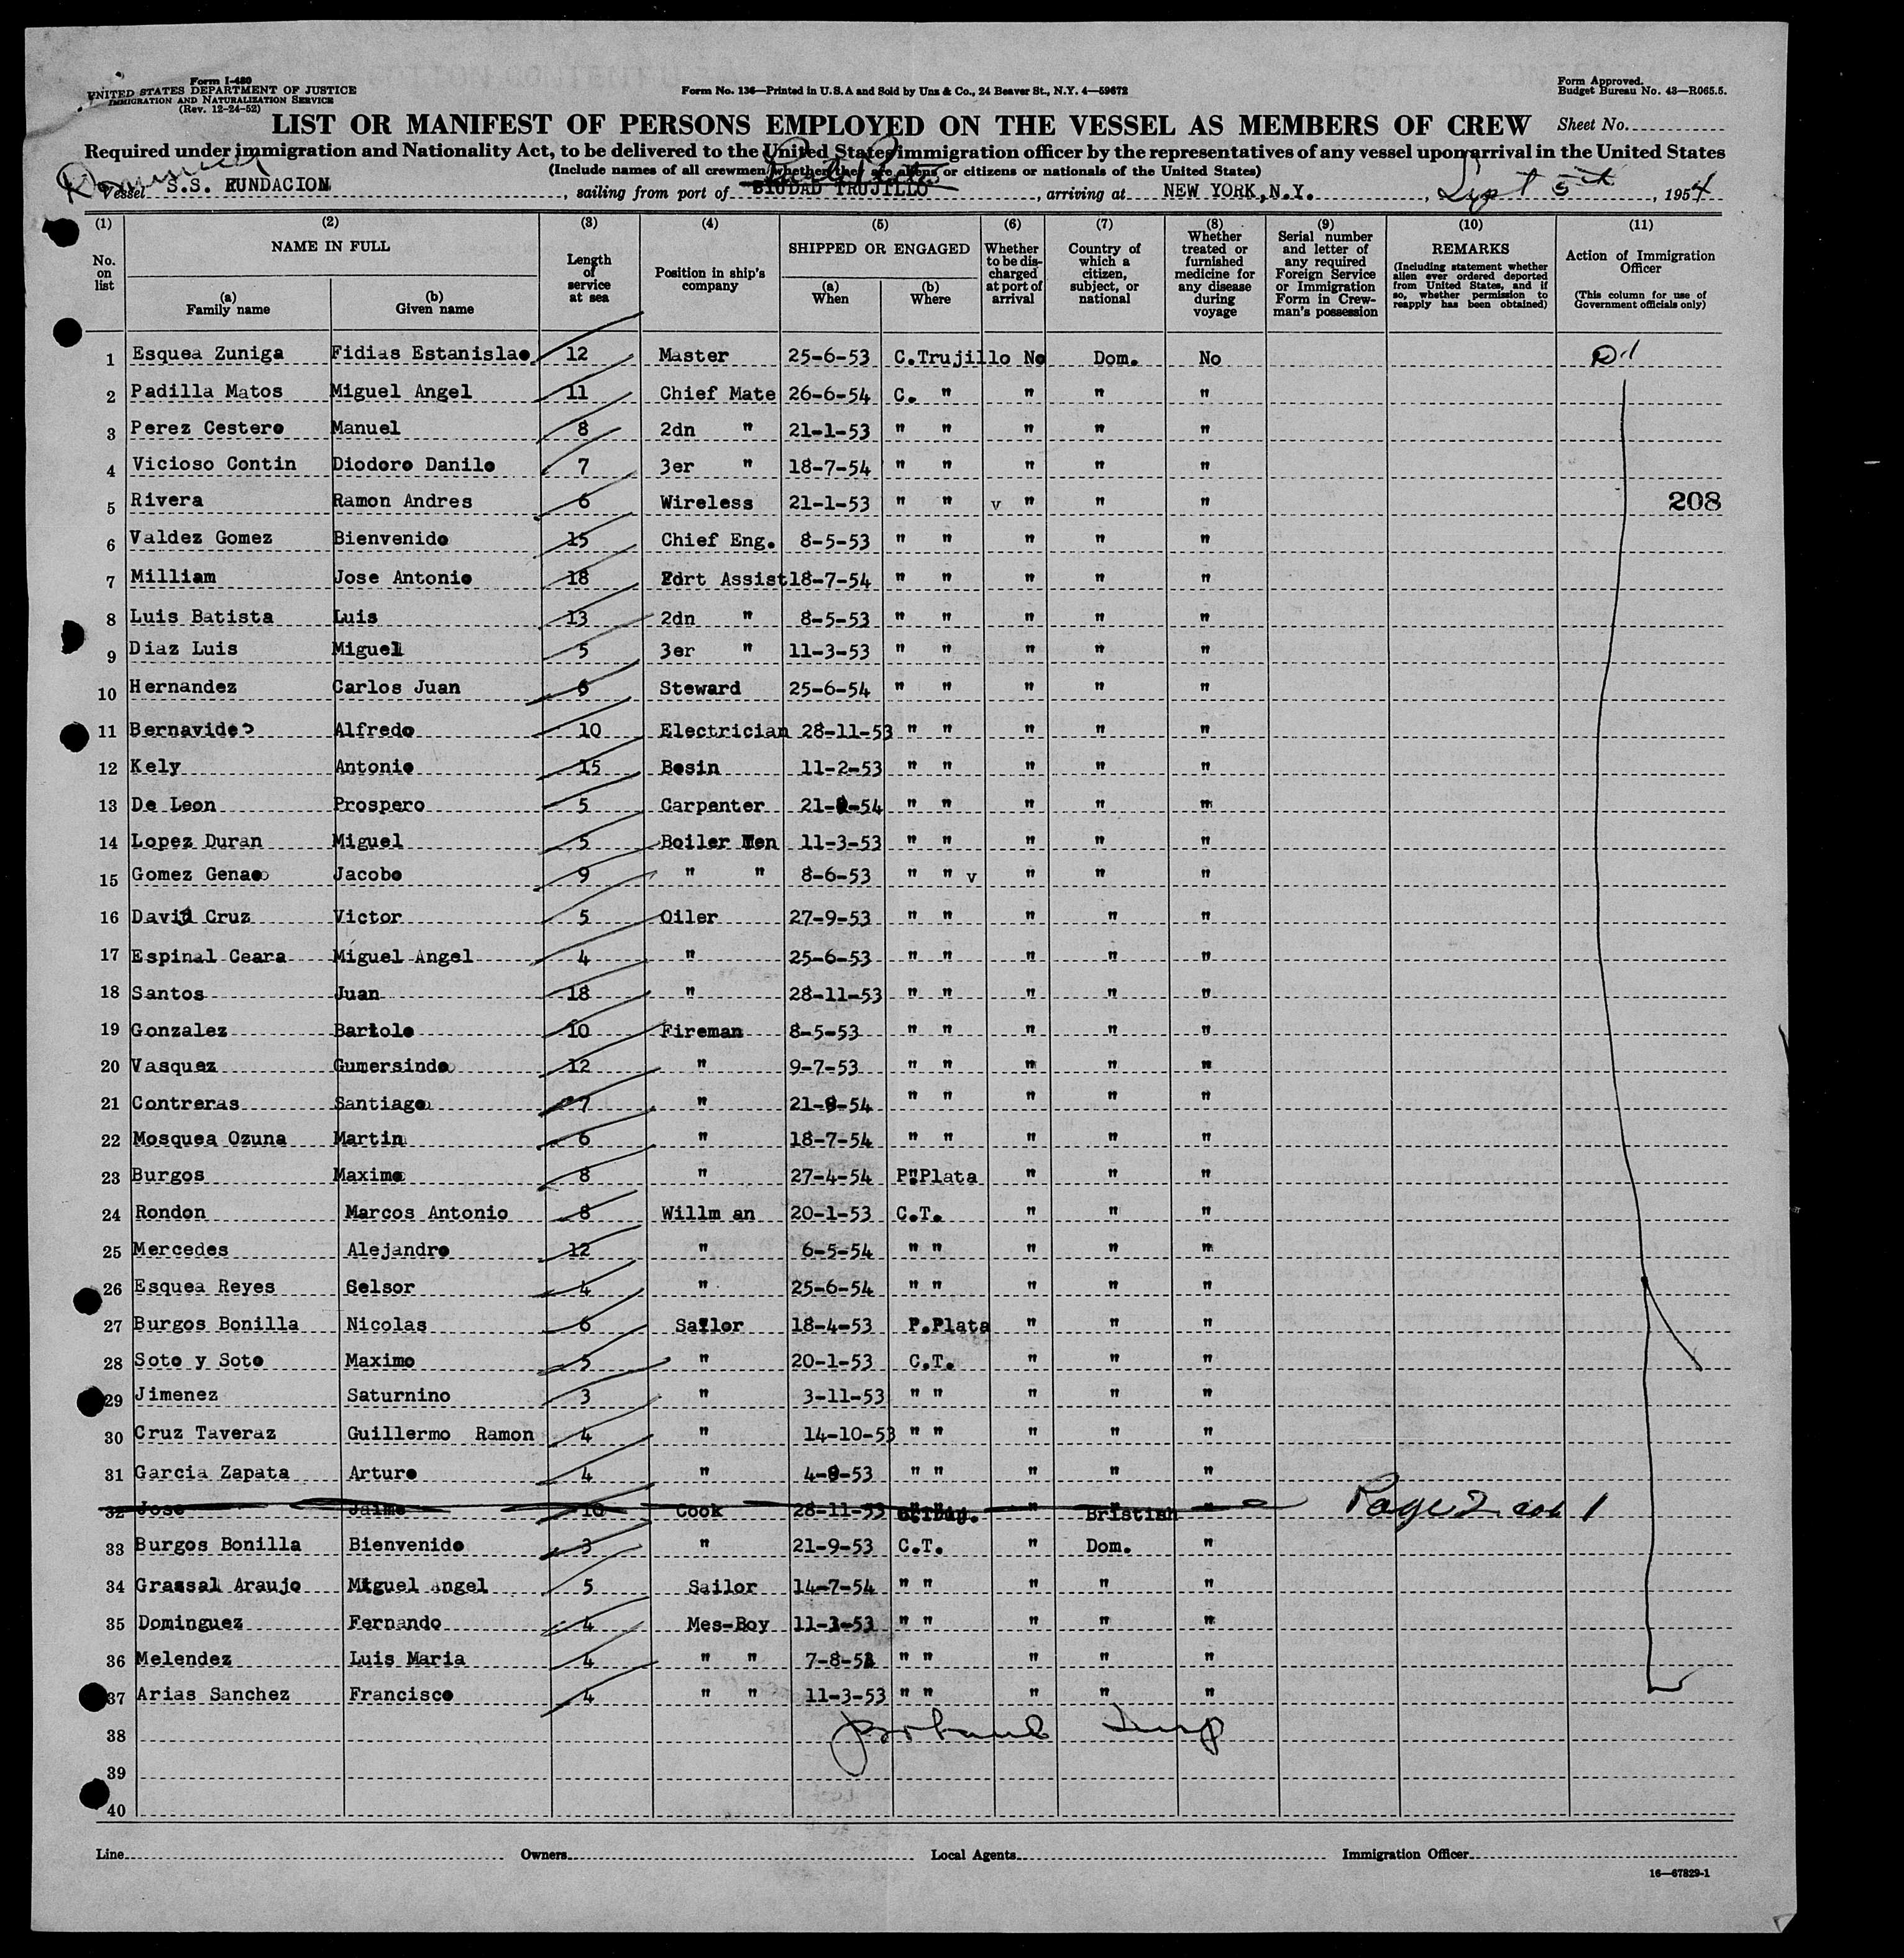 Form I-480
UNITED STATES DEPARTMENT OF JUSTICE
IMMIGRATION AND NATURALIZATION SERVICE
(Rev. 12-24-52)
Form No. 136—Printed in U.S.A and Sold by Unz & Co., 24 Beaver St., N.Y. 4—59672
Form Approved.
Budget Bureau No. 43—R065.5.
LIST OR MANIFEST OF PERSONS EMPLOYED ON THE VESSEL AS MEMBERS OF CREW
Sheet No.
Required under immigration and Nationality Act, to be delivered to the United States immigration officer by the representatives of any vessel upon arrival in the United States
(Include names of all crewmen whether they are aliens or citizens or nationals of the United States)
Vessel S.S. FUNDACION, sailing from port of CIUDAD TRUJILLO, arriving at NEW YORK, N.Y., Sept 5th, 1954
(1) (2) (3) (4) (5) (6) (7) (8) (9) (10) (11)
No. on list
NAME IN FULL
(a) Family name
(b) Given name
Length of service at sea
Position in ship's company
SHIPPED OR ENGAGED
(a) When
(b) Where
Whether to be discharged at port of arrival
Country of which a citizen, subject, or national
Whether treated or furnished medicine for any disease during voyage
Serial number and letter of any required Foreign Service or Immigration Form in Crewman's possession
REMARKS
(Including statement whether alien ever ordered deported from United States, and if so, whether permission to reapply has been obtained)
Action of Immigration Officer
(This column for use of Government officials only)
1 Esquea Zuniga Fidias Estanislao 12 Master 25-6-53 C.Trujillo No Dom. No
2 Padilla Matos Miguel Angel 11 Chief Mate 26-6-54 C. " " " "
3 Perez Cestero Manuel 8 2dn " 21-1-53 " " " " "
4 Vicioso Contin Diodoro Danilo 7 3er " 18-7-54 " " " " "
5 Rivera Ramon Andres 6 Wireless 21-1-53 " " v " " " 208
6 Valdez Gomez Bienvenido 15 Chief Eng. 8-5-53 " " " " "
7 Milliam Jose Antonio 18 Assist 18-7-54 " " " " "
8 Luis Batista Luis 13 2dn " 8-5-53 " " " " "
9 Diaz Luis Miguel 5 3er " 11-3-53 " " " " "
10 Hernandez Carlos Juan 6 Steward 25-6-54 " " " " "
11 Bernavides Alfredo 10 Electrician 28-11-53 " " " " "
12 Kely Antonio 15 Bosin 11-2-53 " " " " "
13 De Leon Prospero 5 Carpenter 21-8-54 " " " " "
14 Lopez Duran Miguel 5 Boiler Men 11-3-53 " " " " "
15 Gomez Genao Jacobo 9 " " 8-6-53 " " v " " "
16 David Cruz Victor 5 Oiler 27-9-53 " " " " "
17 Espinal Ceara Miguel Angel 4 " 25-6-53 " " " " "
18 Santos Juan 18 " 28-11-53 " " " " "
19 Gonzalez Bartolo 10 Fireman 8-5-53 " " " " "
20 Vasquez Gumersindo 12 " 9-7-53 " " " " "
21 Contreras Santiago 7 " 21-8-54 " " " " "
22 Mosquea Ozuna Martin 6 " 18-7-54 " " " " "
23 Burgos Maximo 8 " 27-4-54 P.Plata " " "
24 Rondon Marcos Antonio 8 Willm an 20-1-53 C.T. " " "
25 Mercedes Alejandro 12 " 6-5-54 " " " " "
26 Esquea Reyes Celsor 4 " 25-6-54 " " " " "
27 Burgos Bonilla Nicolas 6 Sailor 18-4-53 P.Plata " " "
28 Soto y Soto Maximo 5 " 20-1-53 C.T. " " "
29 Jimenez Saturnino 3 " 3-11-53 " " " " "
30 Cruz Taveraz Guillermo Ramon 4 " 14-10-53 " " " " "
31 Garcia Zapata Arturo 4 " 4-8-53 " " " " "
32 Jose Jaime 10 Cook 28-11-53 " Bristish " Page 2 1
33 Burgos Bonilla Bienvenido 3 " 21-9-53 C.T. " Dom. "
34 Grassal Araujo Miguel Angel 5 Sailor 14-7-54 " " " " "
35 Dominguez Fernando 4 Mes-Boy 11-3-53 " " " " "
36 Melendez Luis Maria 4 " " 7-8-53 " " " " "
37 Arias Sanchez Francisco 4 " " 11-3-53 " " " " "
38
39
40
Line
Owners
Local Agents
Immigration Officer
16—67829-1